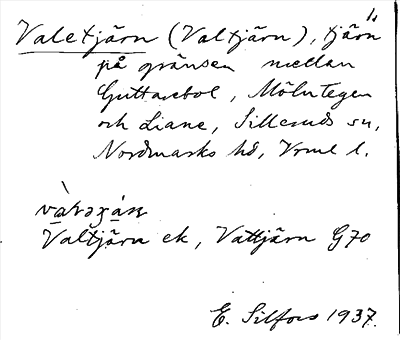 1.
Valetjärn (Valtjärn), tjärn
på gränsen mellan
Guttanebol, Mölntegen
och Liane, Silleruds sn,
Nordmarks hd, Vrml l.
Valtjärn ek, Vattjärn G70
E. Silfors 1937.